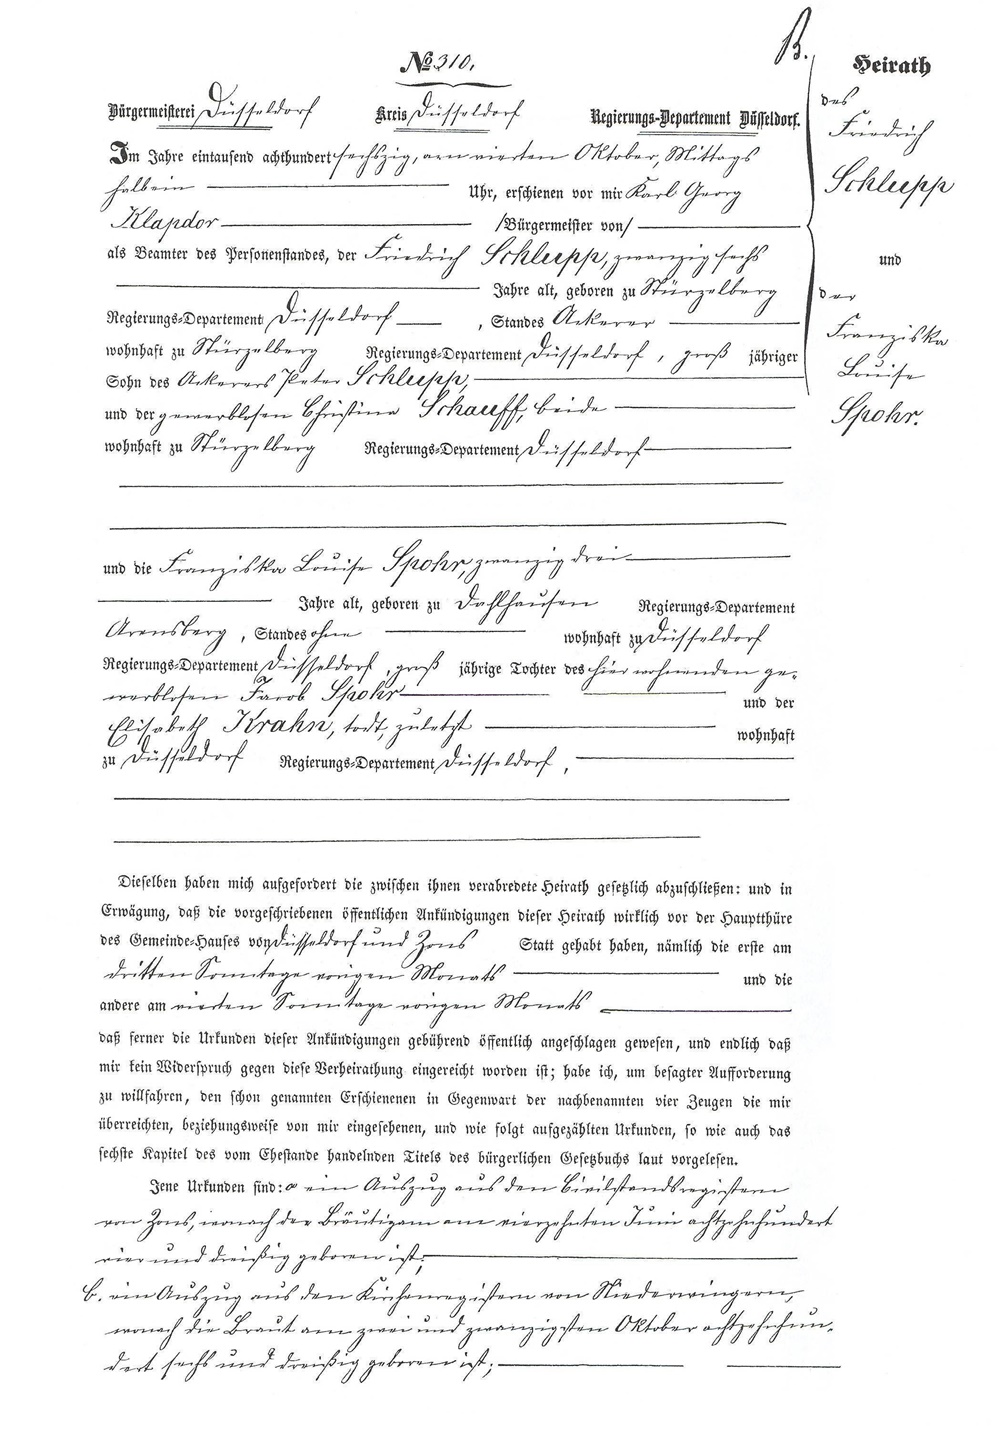 No 310.
B.
Heirath
des
Friedrich
Schlupp
und
der
Franziska
Louise
Spohr.
Bürgermeisterei Düsseldorf Kreis Düsseldorf Regierungs-Departement Düsseldorf.
Im Jahre eintausend achthundert sechszig, am vierten Oktober, Mittags
halb ein Uhr, erschienen vor mir Karl Georg
Klapdor /Bürgermeister von/
als Beamter des Personenstandes, der Friedrich Schlupp, zwanzig sechs
Jahre alt, geboren zu Stürzelberg
Regierungs-Departement Düsseldorf, Standes Ackerer
wohnhaft zu Stürzelberg Regierungs-Departement Düsseldorf, groß jähriger
Sohn des Ackerers Peter Schlupp,
und der gewerblosen Christina Schauff, beide
wohnhaft zu Stürzelberg Regierungs-Departement Düsseldorf
und die Franziska Louise Spohr, zwanzig drei
Jahre alt, geboren zu Dahlhausen Regierungs-Departement
Arensberg, Standes ohne wohnhaft zu Düsseldorf
Regierungs-Departement Düsseldorf, groß jährige Tochter des hier wohnenden ge-
werblosen Jacob Spohr und der
Elisabeth Krahn, todt, zuletzt wohnhaft
zu Düsseldorf Regierungs-Departement Düsseldorf,
Dieselben haben mich aufgefordert die zwischen ihnen verabredete Heirath gesetzlich abzuschließen: und in
Erwägung, daß die vorgeschriebenen öffentlichen Ankündigungen dieser Heirath wirklich vor der Hauptthüre
des Gemeinde-Hauses von Düsseldorf und Zons Statt gehabt haben, nämlich die erste am
dritten Sonntage vorigen Monats und die
andere am vierten Sonntage vorigen Monats
daß ferner die Urkunden dieser Ankündigungen gebührend öffentlich angeschlagen gewesen, und endlich daß
mir kein Widerspruch gegen diese Verheirathung eingereicht worden ist; habe ich, um besagter Aufforderung
zu willfahren, den schon genannten Erschienenen in Gegenwart der nachbenannten vier Zeugen die mir
überreichten, beziehungsweise von mir eingesehenen, und wie folgt aufgezählten Urkunden, so wie auch das
sechste Kapitel des vom Ehestande handelnden Titels des bürgerlichen Gesetzbuchs laut vorgelesen.
Jene Urkunden sind: a ein Auszug aus den Civilstandsregistern
von Zons, wonach der Bräutigam am vierzehnten Juni achtzehnhundert
vier und dreißig geboren ist;
b. ein Auszug aus den Kirchenregistern von Niederwingern,
wonach die Braut am zwei und zwanzigsten Oktober achtzehnhun-
dert sechs und dreißig geboren ist;